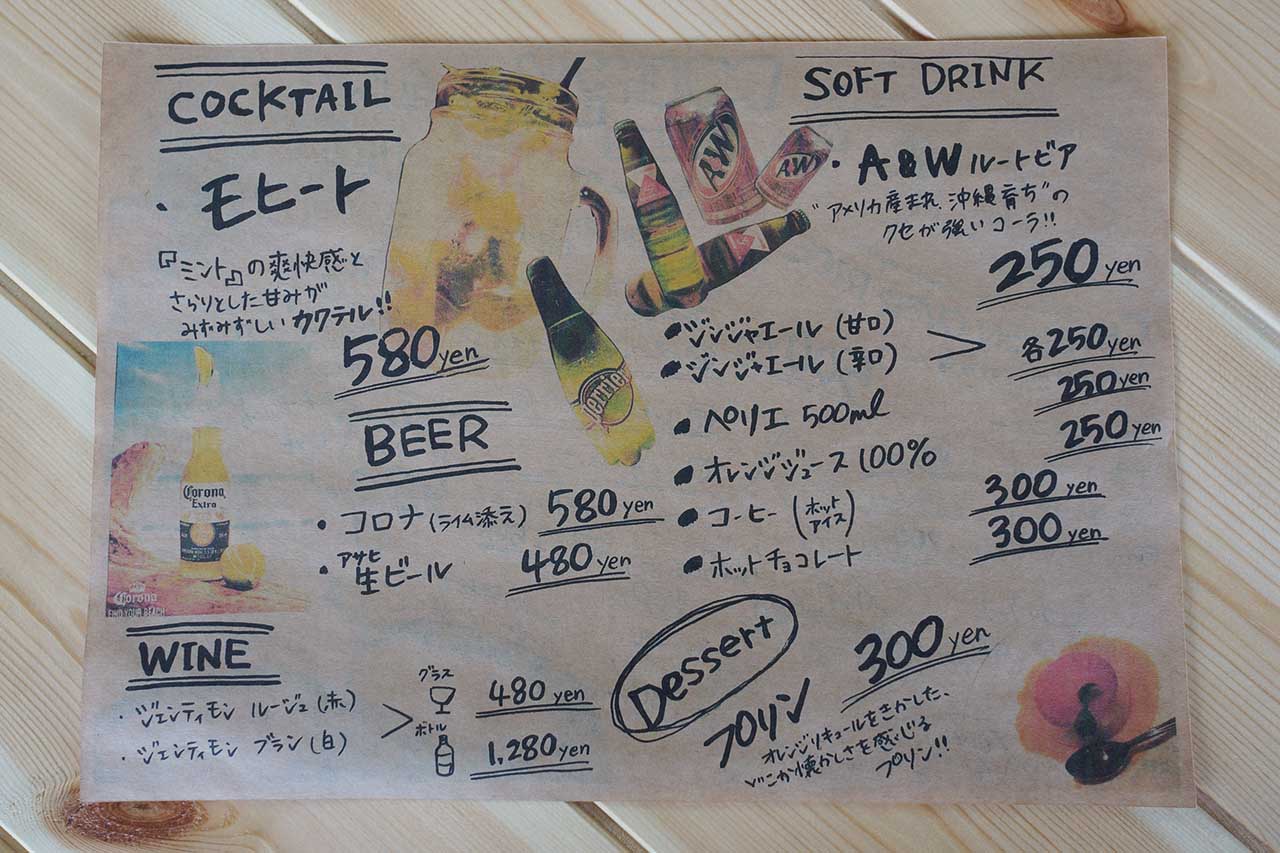 COCKTAIL
・モヒート
『ミント』の爽快感と
さらりとした甘みが
みずみずしいカクテル!!
580yen
BEER
・コロナ(ライム添え) 580yen
アサヒ
・生ビール 480yen
Corona
Extra
Corona
FIND YOUR BEACH
WINE
・ジェンティモン ルージュ(赤)
・ジェンティモン ブラン(白)
グラス
480 yen
ボトル
1,280yen
SOFT DRINK
・A&Wルートビア
"アメリカ産まれ、沖縄育ち"の
クセが強いコーラ!!
250yen
A&W
A&W
Perrier
●ジンジャエール(甘口)
●ジンジャエール(辛口)
各250yen
●ペリエ 500ml 250yen
●オレンジジュース100% 250yen
●コーヒー(ホット アイス) 300yen
●ホットチョコレート 300yen
Dessert
プリン 300yen
オレンジリキュールをきかした、
どこか懐かしさを感じる
プリン!!